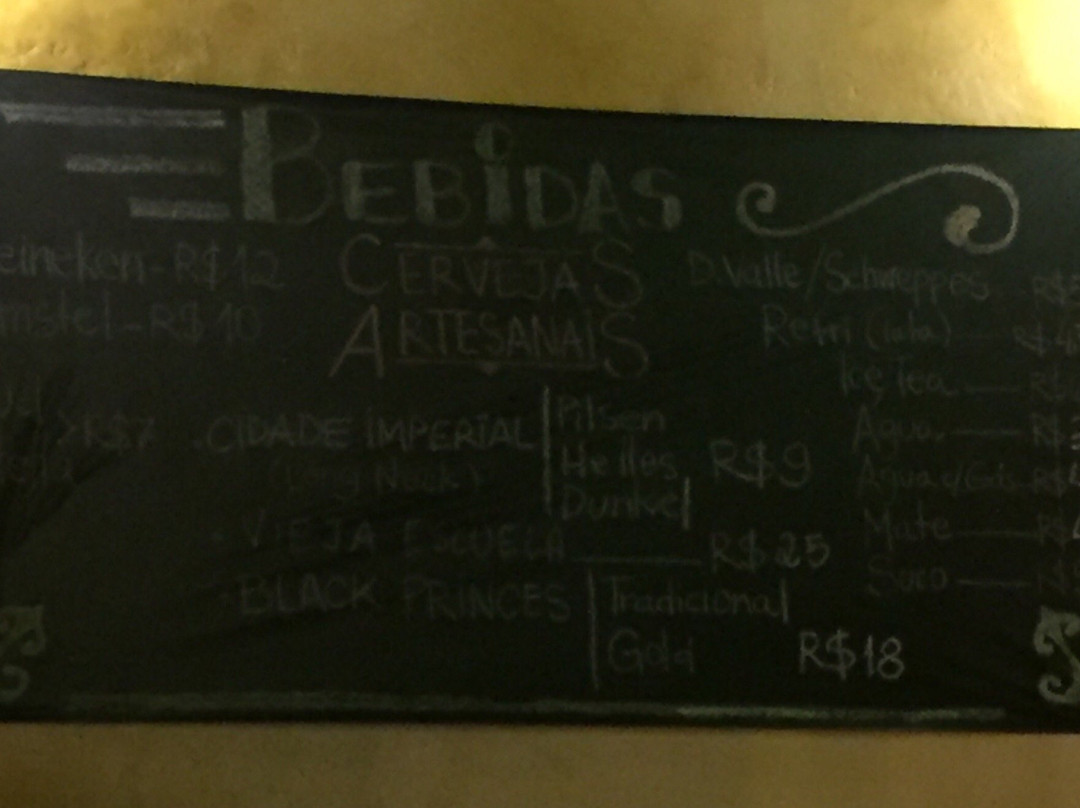 BEBIDAS
eineken - R$12
mstel - R$10
R$7
CERVEJAS
ARTESANAIS
. CIDADE IMPERIAL
(Long Neck)
Pilsen
Helles R$9
Dunkel
. VIEJA ESCUELA R$25
. BLACK PRINCES
Tradicional
Gold R$18
D. Valle/Schweppes R$
Refri (lata) R$4
Ice Tea R$
Água R$3
Água c/Gás R$4
Mate R$4
Suco R$